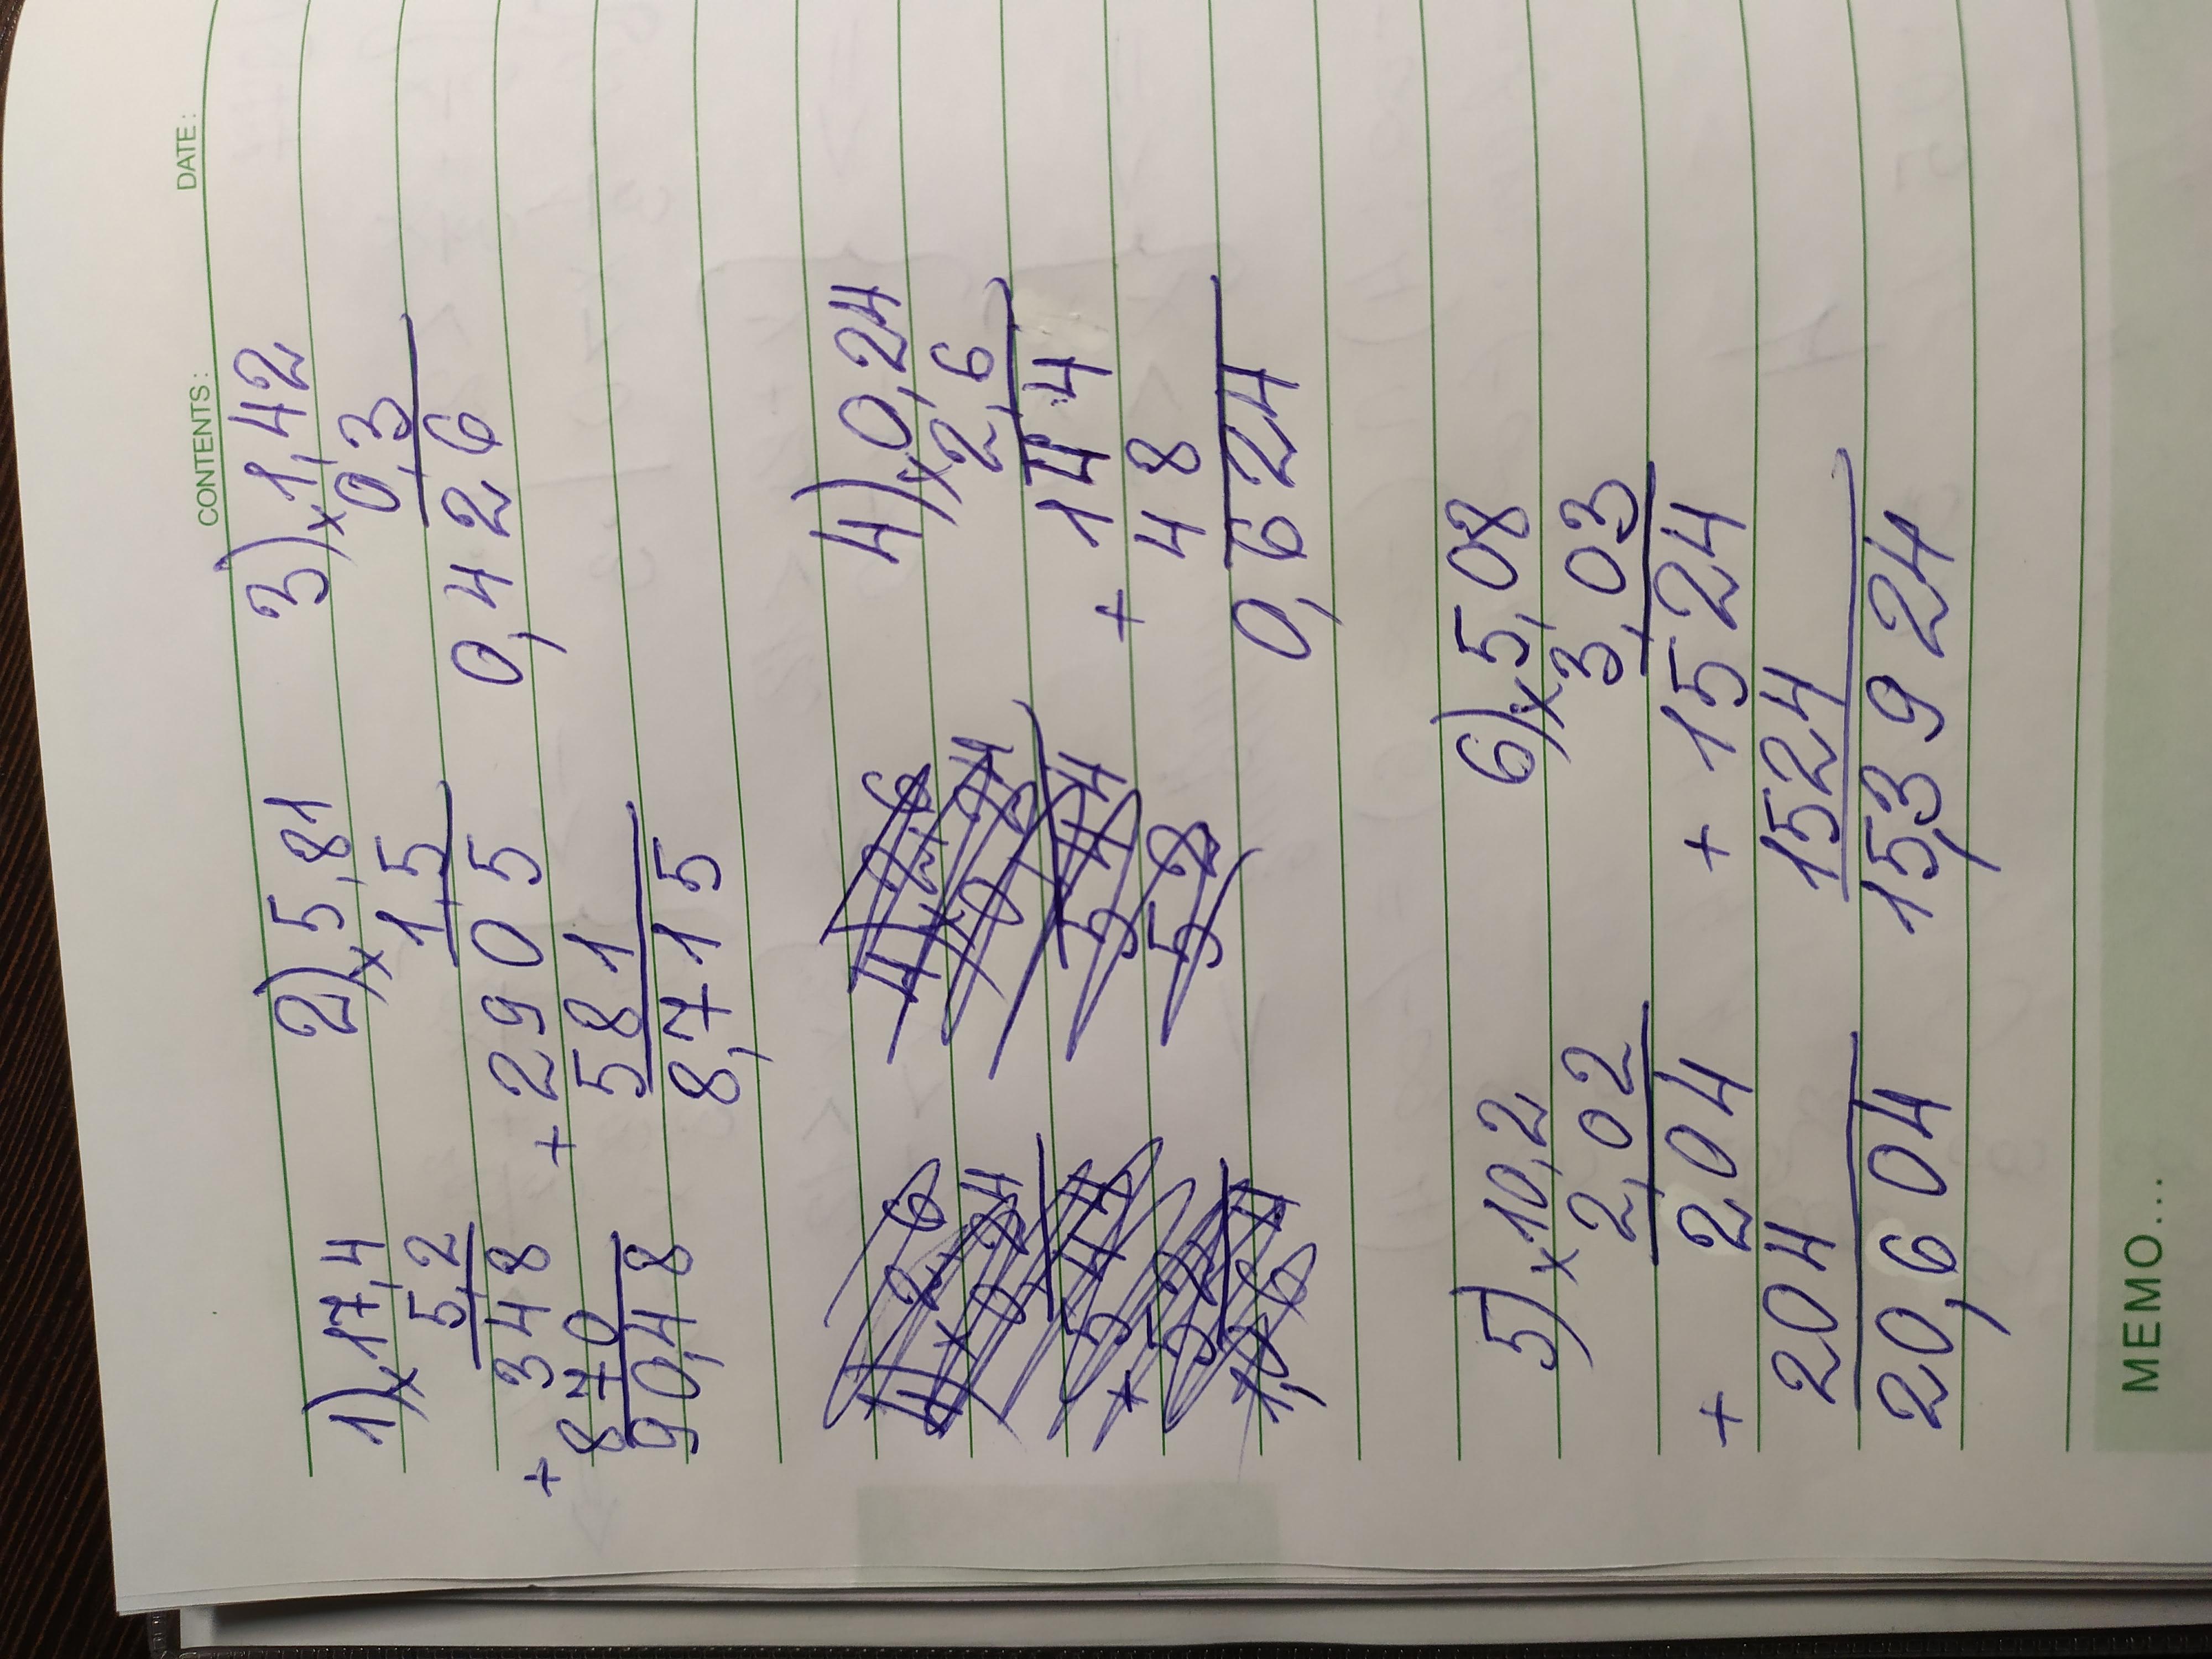 CONTENTS: DATE:
1) × 17,4
5,2
348
+
870
90,48
2) × 5,81
1,5
+ 2905
581
8,715
3) × 1,42
0,3
0,426
4) × 0,24
2,6
144
+ 48
0,624
5) × 10,2
2,02
204
+
204
20,604
6) × 5,08
3,03
+ 1524
1524
15,3924
MEMO...